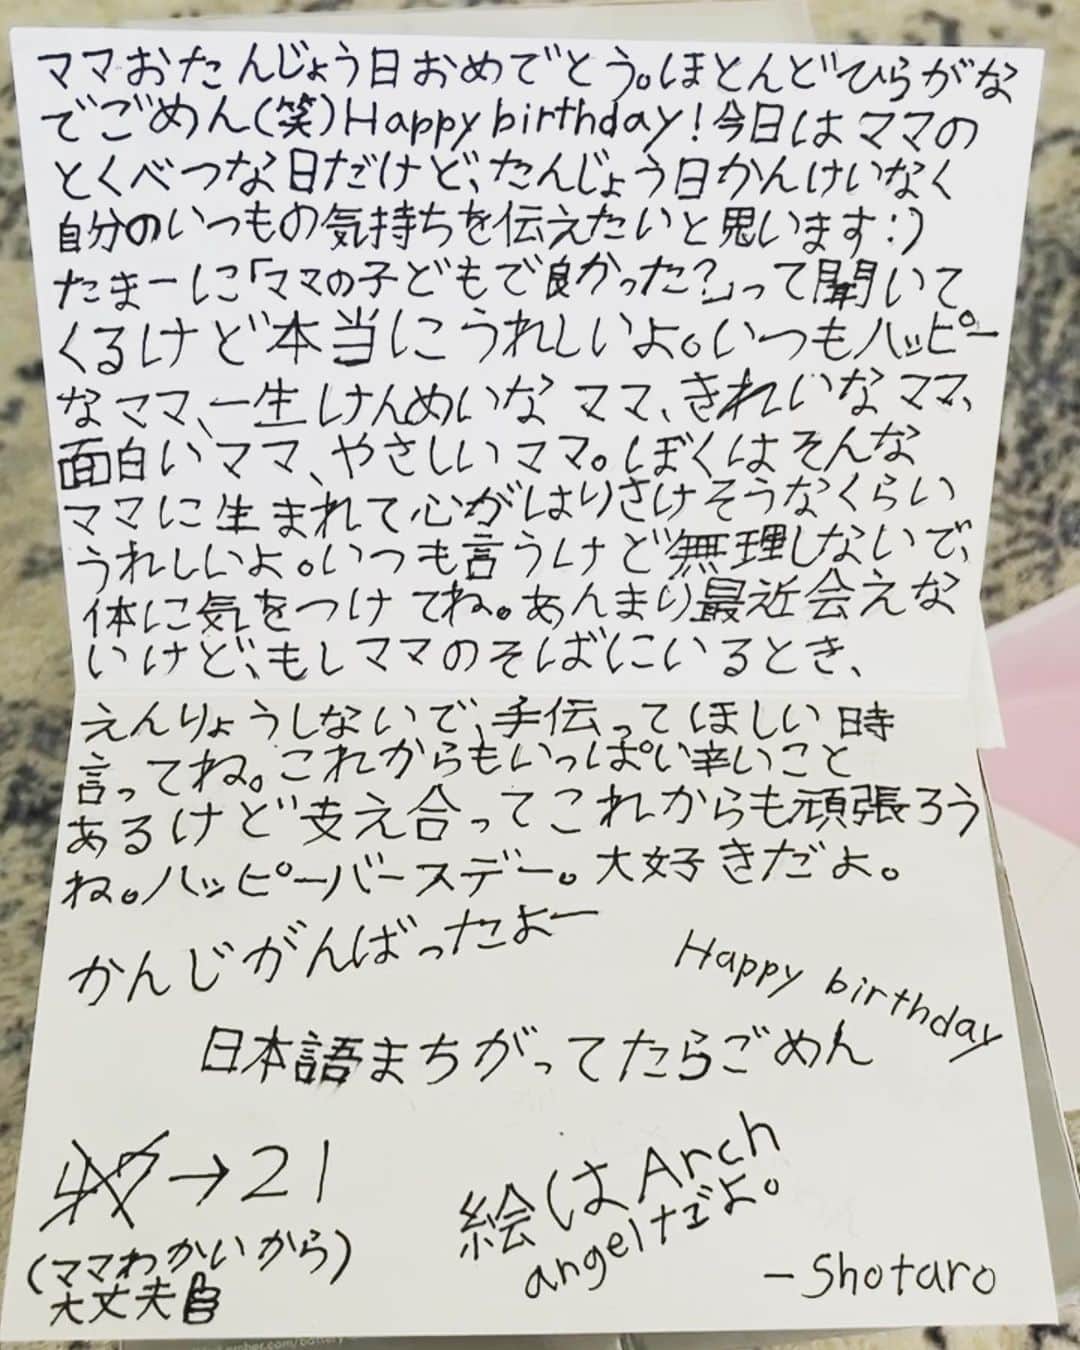 ママおたんじょう日おめでとう。ほとんどひらがな
でごめん(笑)Happy birthday!今日はママの
とくべつな日だけど、たんじょう日かんけいなく
自分のいつもの気持ちを伝えたいと思います:)
たまーに「ママの子どもで良かった?」って聞いて
くるけど本当にうれしいよ。いつもハッピー
なママ、一生けんめいなママ、きれいなママ、
面白いママ、やさしいママ。ぼくはそんな
ママに生まれて心がはりさけそうなくらい
うれしいよ。いつも言うけど無理しないで、
体に気をつけてね。あんまり最近会えな
いけど、もしママのそばにいるとき、
えんりょうしないで、手伝ってほしい時
言ってね。これからもいっぱい辛いこと
あるけど支え合ってこれからも頑張ろう
ね。ハッピーバースデー。大好きだよ。
かんじがんばったよー
Happy birthday
日本語まちがってたらごめん
→21
(ママわかいから)
大丈夫
絵はArch
angelだよ。
-Shotaro